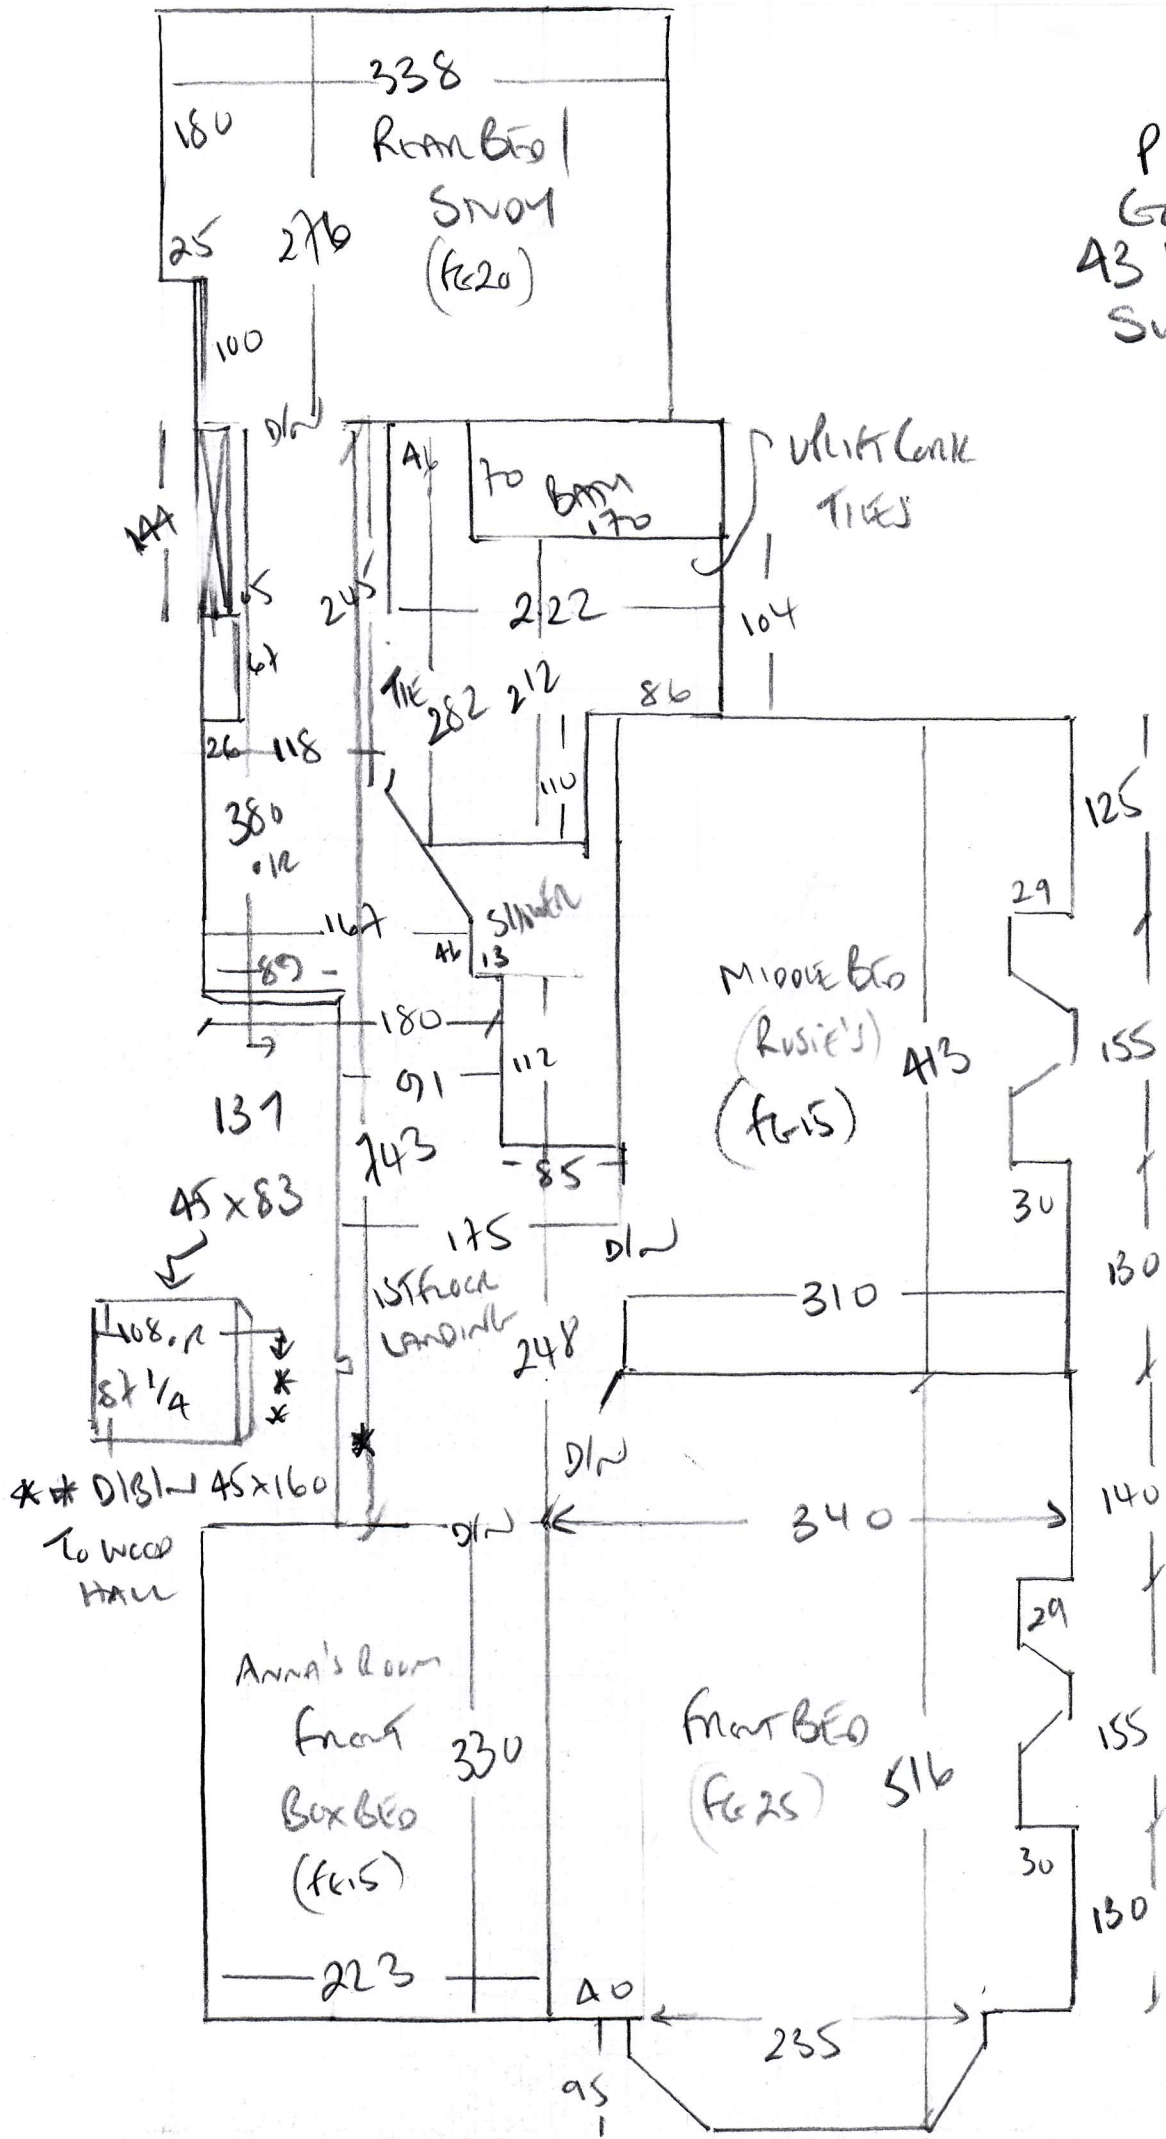 338
180
REAR BED/
STUDY
(FG20)
25
276
100
P
43
D/W
144
46
70
BATH
170
UPLIFT CORK
TILES
65
245
222
104
67
TILE
282
212
86
26
118
110
125
380
.12
29
167
46
13
SHOWER
89
180
91
112
MIDDLE BED
(ROSIE'S)
(FG15)
413
155
137
743
85
45 x 83
175
D/W
30
130
1ST FLOOR
LANDING
310
108.12
87 1/4
*
*
248
*
D/W
** D/B/W 45x160
TO WOOD
HALL
D/W
340
140
29
ANNA'S ROOM
FRONT
BOX BED
(FG15)
330
FRONT BED
(FG25)
516
155
30
130
223
40
235
95